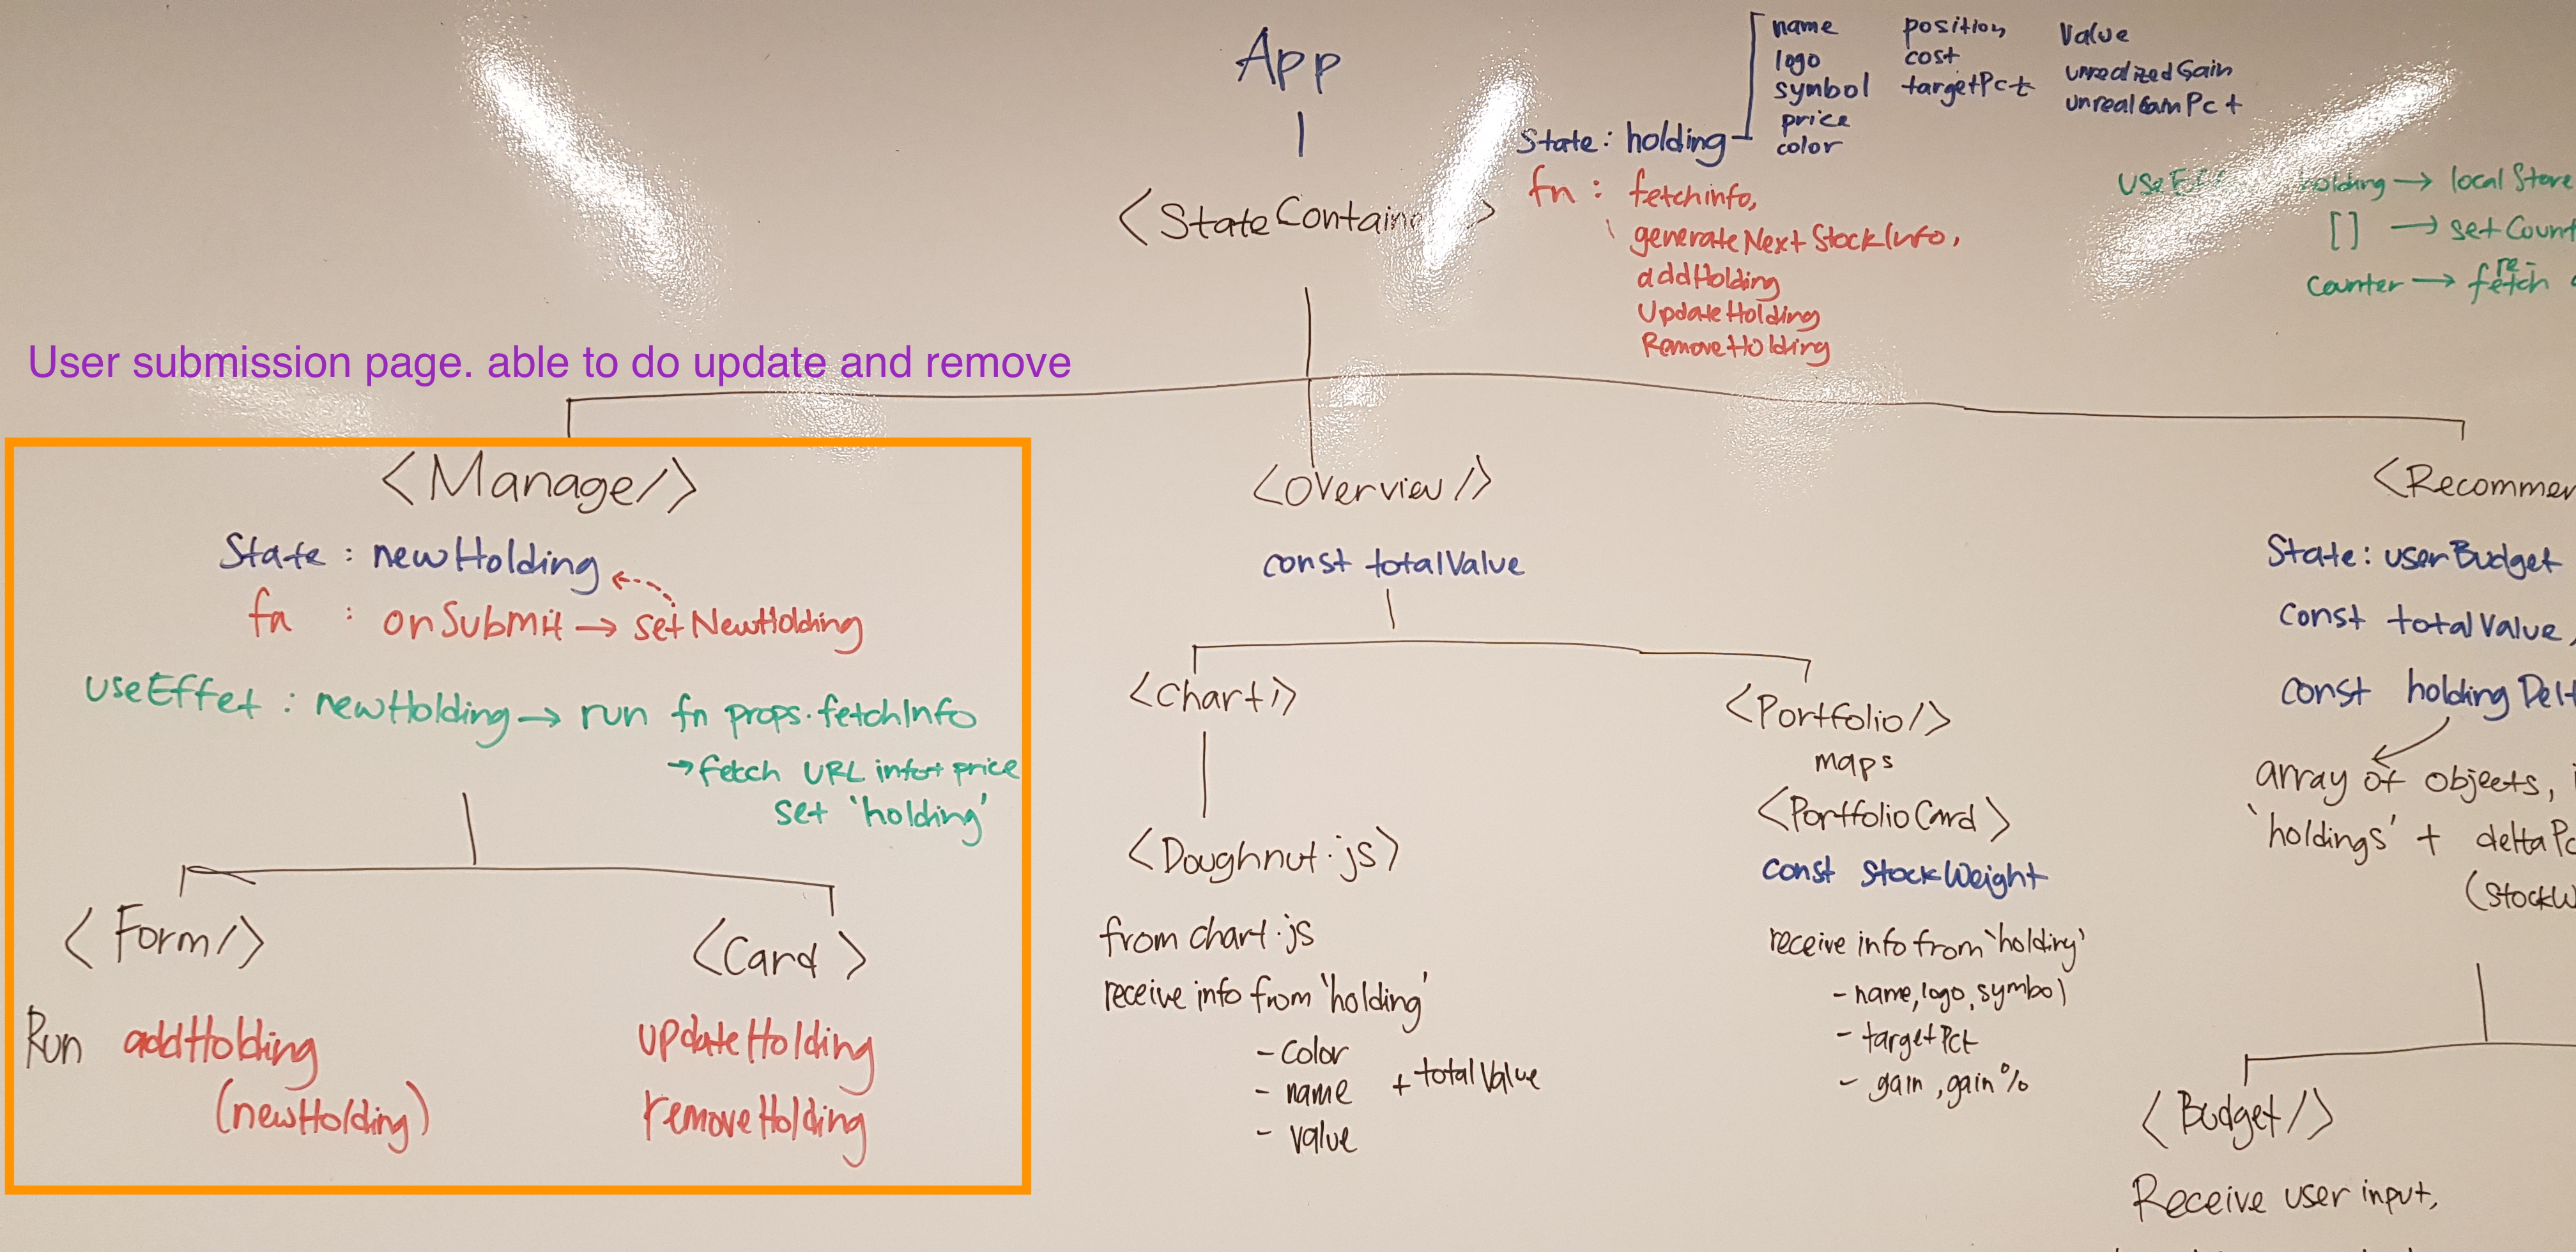 App
name position Value
logo cost unrealizedGain
symbol targetPct unrealGainPct
price
color
State: holding
fn : fetchinfo,
generateNextStockInfo,
addHolding
UpdateHolding
RemoveHolding
holding → localStore
[] → setCount
counter → re-fetch
<StateContain >
User submission page. able to do update and remove
<Manage/>
State : newHolding
fn : onSubmit → setNewHolding
useEffet : newHolding → run fn props.fetchInfo
→ fetch URL info+ price
set 'holding'
<Form/>
Run addHolding
(newHolding)
<Card >
updateHolding
removeHolding
<Overview/>
const totalValue
<Chart/>
<Doughnut.js>
from chart.js
receive info from 'holding'
- Color
- name + totalValue
- value
<Portfolio/>
maps
<PortfolioCard>
const StockWeight
receive info from 'holding'
- name, logo, symbol
- targetPct
- gain, gain%
<Recommen
State: userBudget
const totalValue,
const holdingDelt
array of objects,
'holdings' + deltaPc
(StockW
<Budget/>
Receive user input,